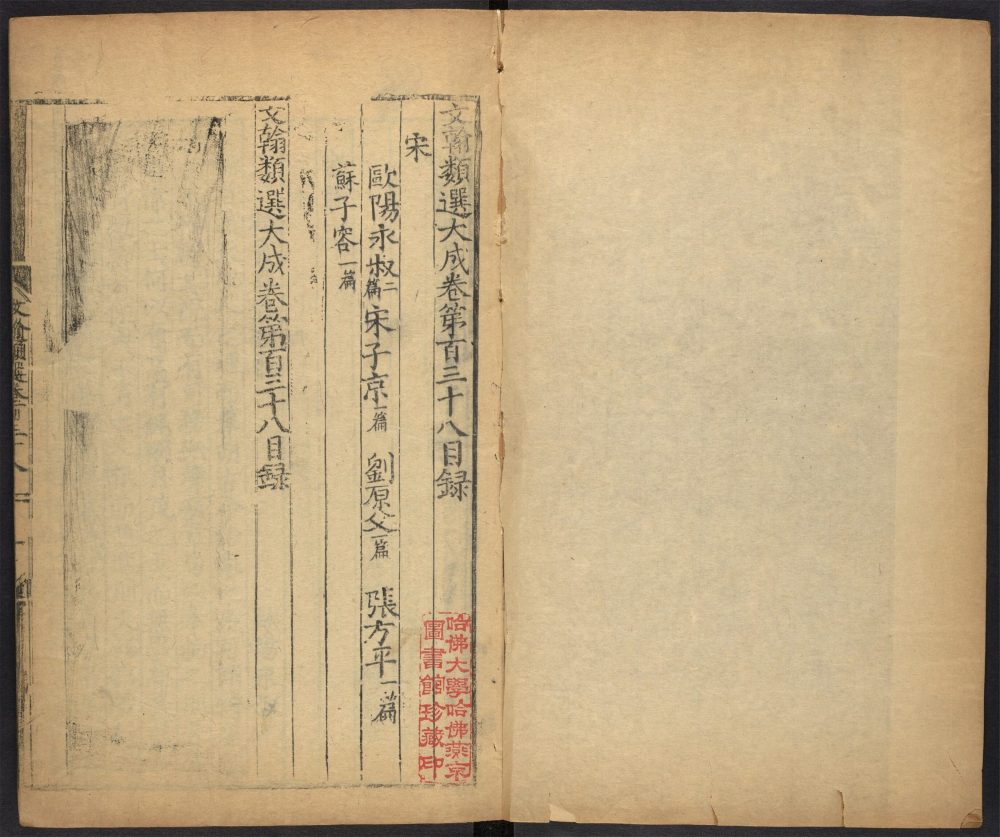 文翰類選大成卷第百三十八目録
宋
歐陽永叔二篇 宋子京一篇 劉原父一篇 張方平一篇
蘇子容一篇
文翰類選大成卷第百三十八目録
哈佛大學哈佛燕京
圖書館珍藏印